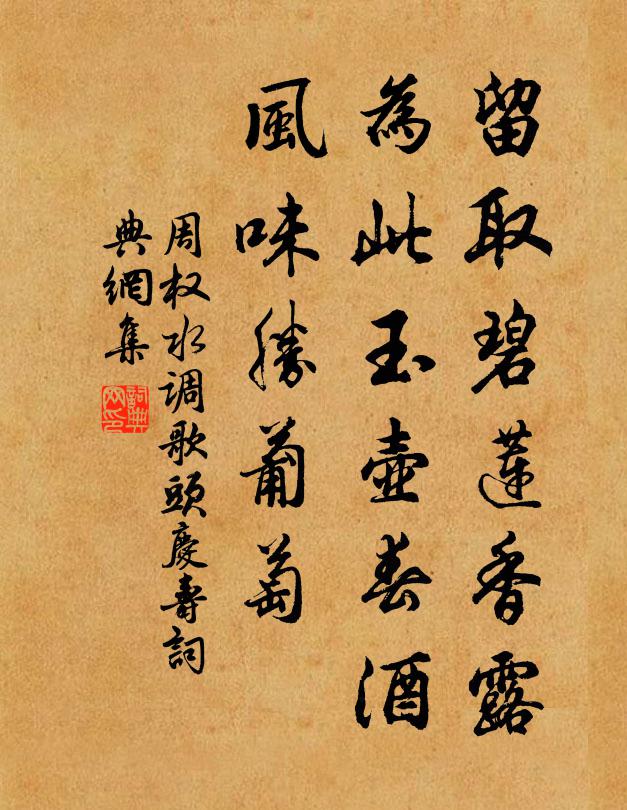 留取碧蓮香露
為此玉壺春酒
風味勝葡萄
周权水调歌頭慶壽詞
典網集
詞典网印